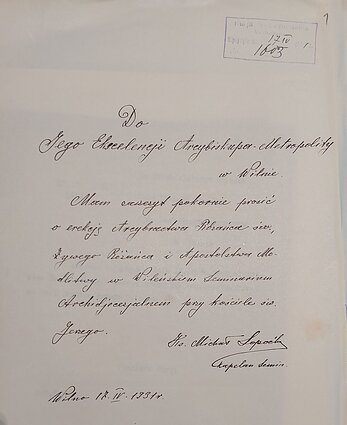 1
17 IV
1003
Do
Jego Ekscelencji Arcybiskupa-Metropolity
w Wilnie.
Mam zaszczyt pokornie prosić
o erekcję Arcybractwa Różańca św.,
Żywego Różańca i Apostolstwa Mo-
dlitwy w Wileńskiem Seminarium
Archidiecezjalnem przy kościele św.
Jerzego.
Ks. Michał Sopoćko
Kapelan Semin.
Wilno 17. IV. 1931 r.